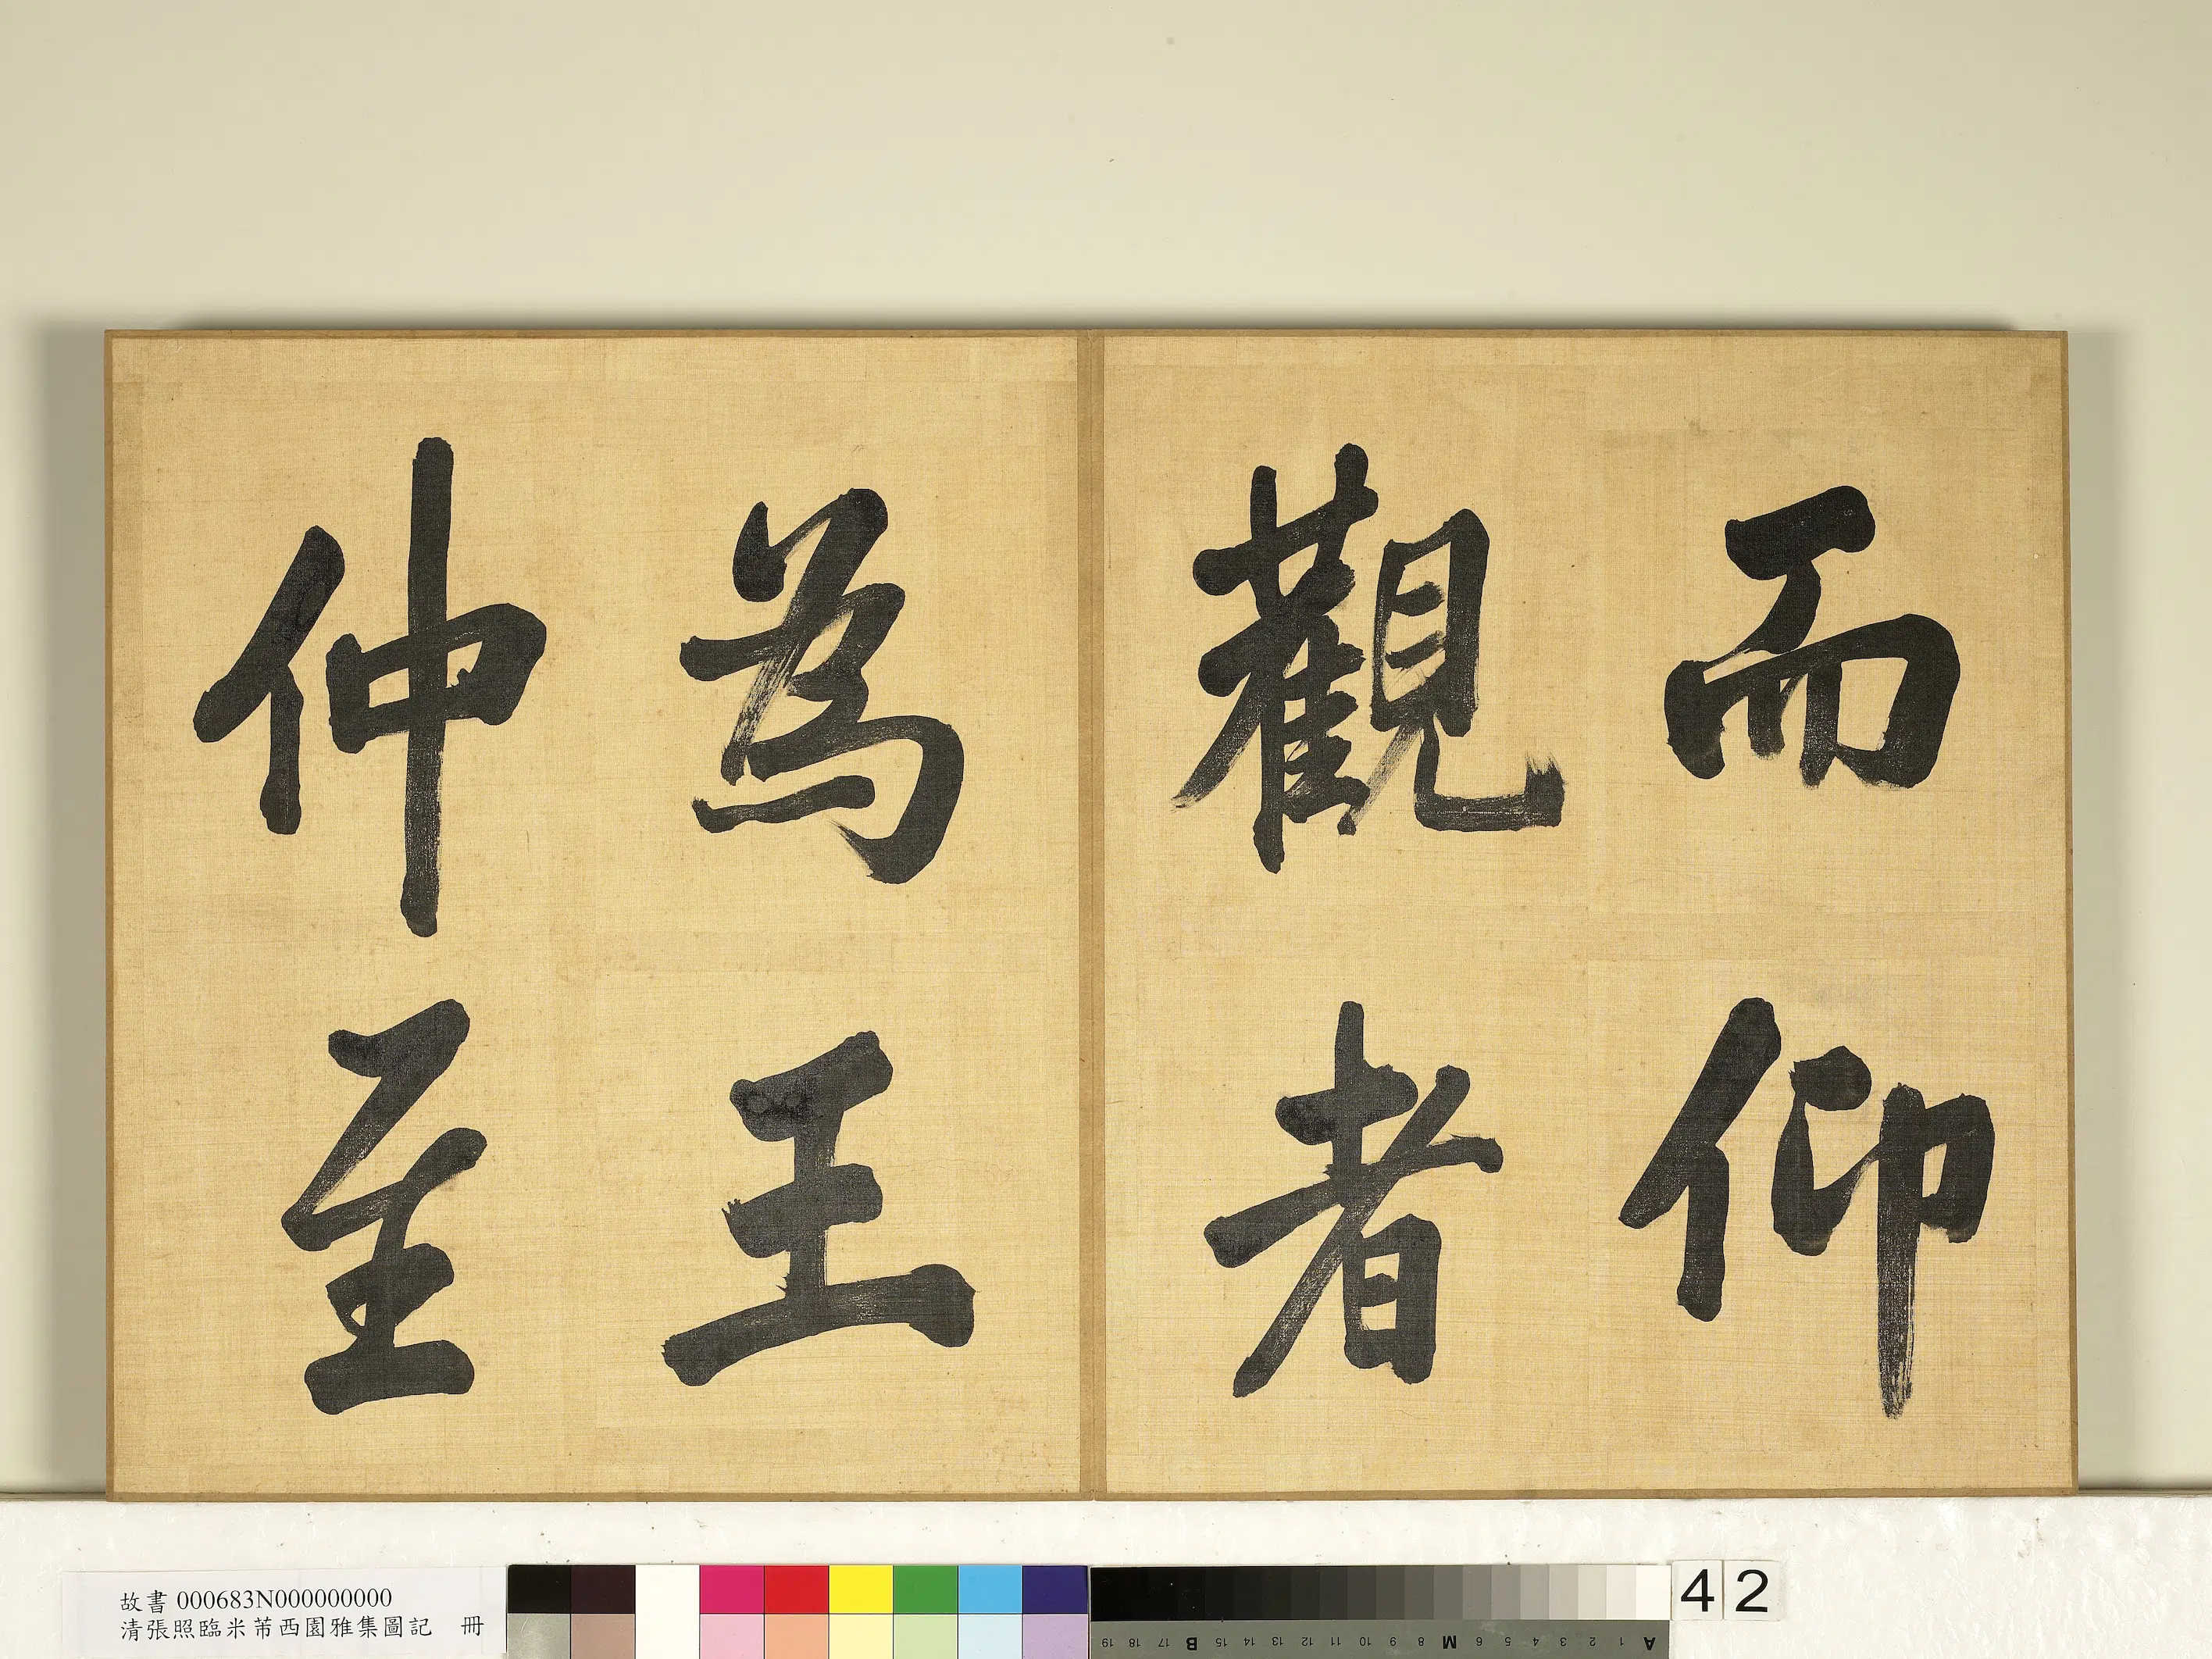 而仰
觀者
為王
仲至
故書 000683N000000000
清張照臨米芾西園雅集圖記 冊
42
19 18 17 B 15 14 13 12 11 10 9 8 M 6 5 4 3 2 1 A